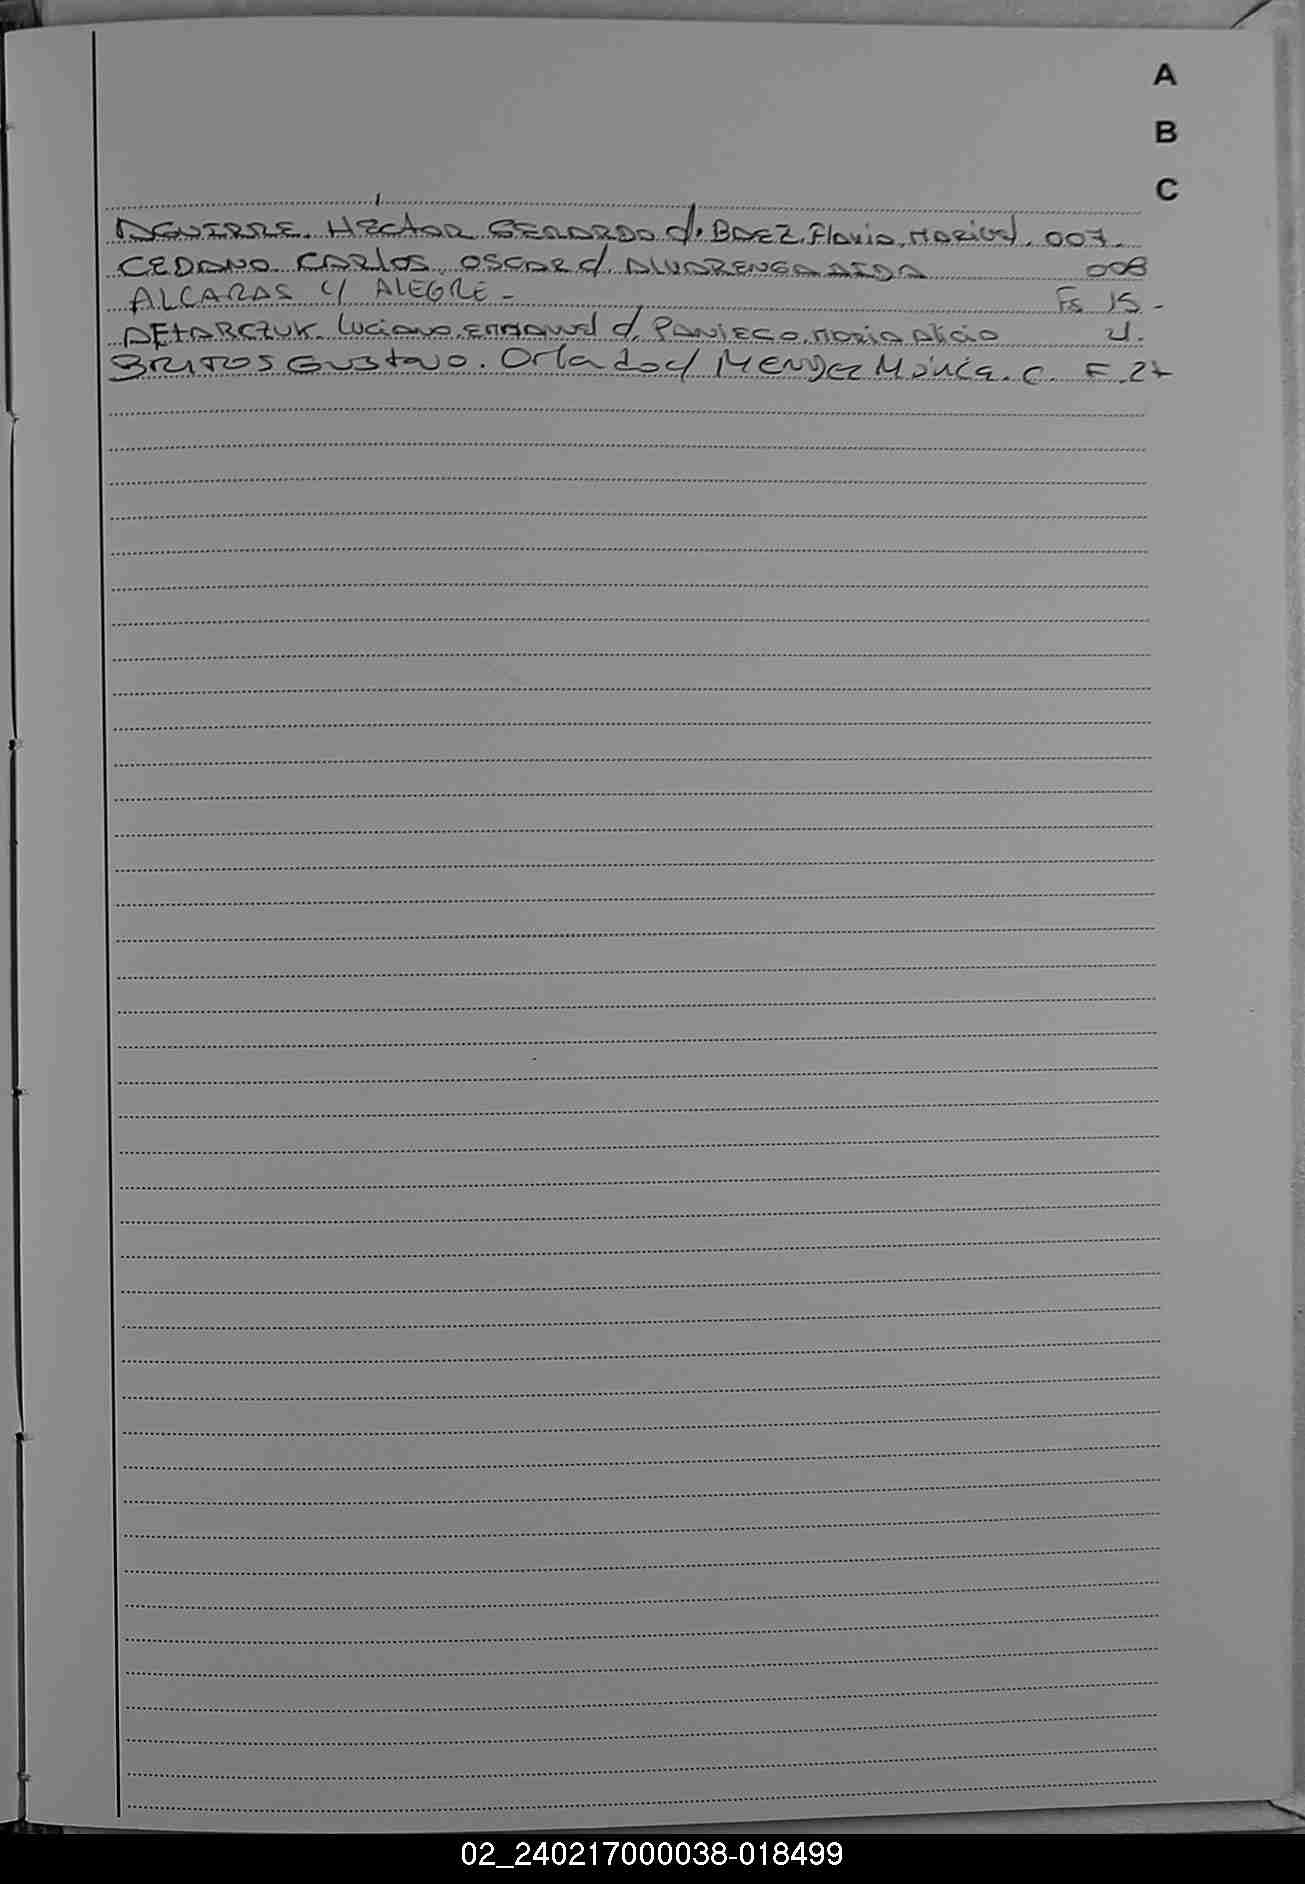 A
B
C
AGUIRRE. HECTOR GERARDO c/. BAEZ. Flavia. Maricel. 007.
CEDANO. CARLOS. OSCAR c/. ALVARENGA AIDA 008
ALCARAS c/ ALEGRE - Fs 15 -
LUCIANO. EMMANUEL c/. PANIEGO. MARIA Alicia
BRITOS Gustavo. Orlado c/ MENDEZ Mónica. C. F. 27
02_240217000038-018499